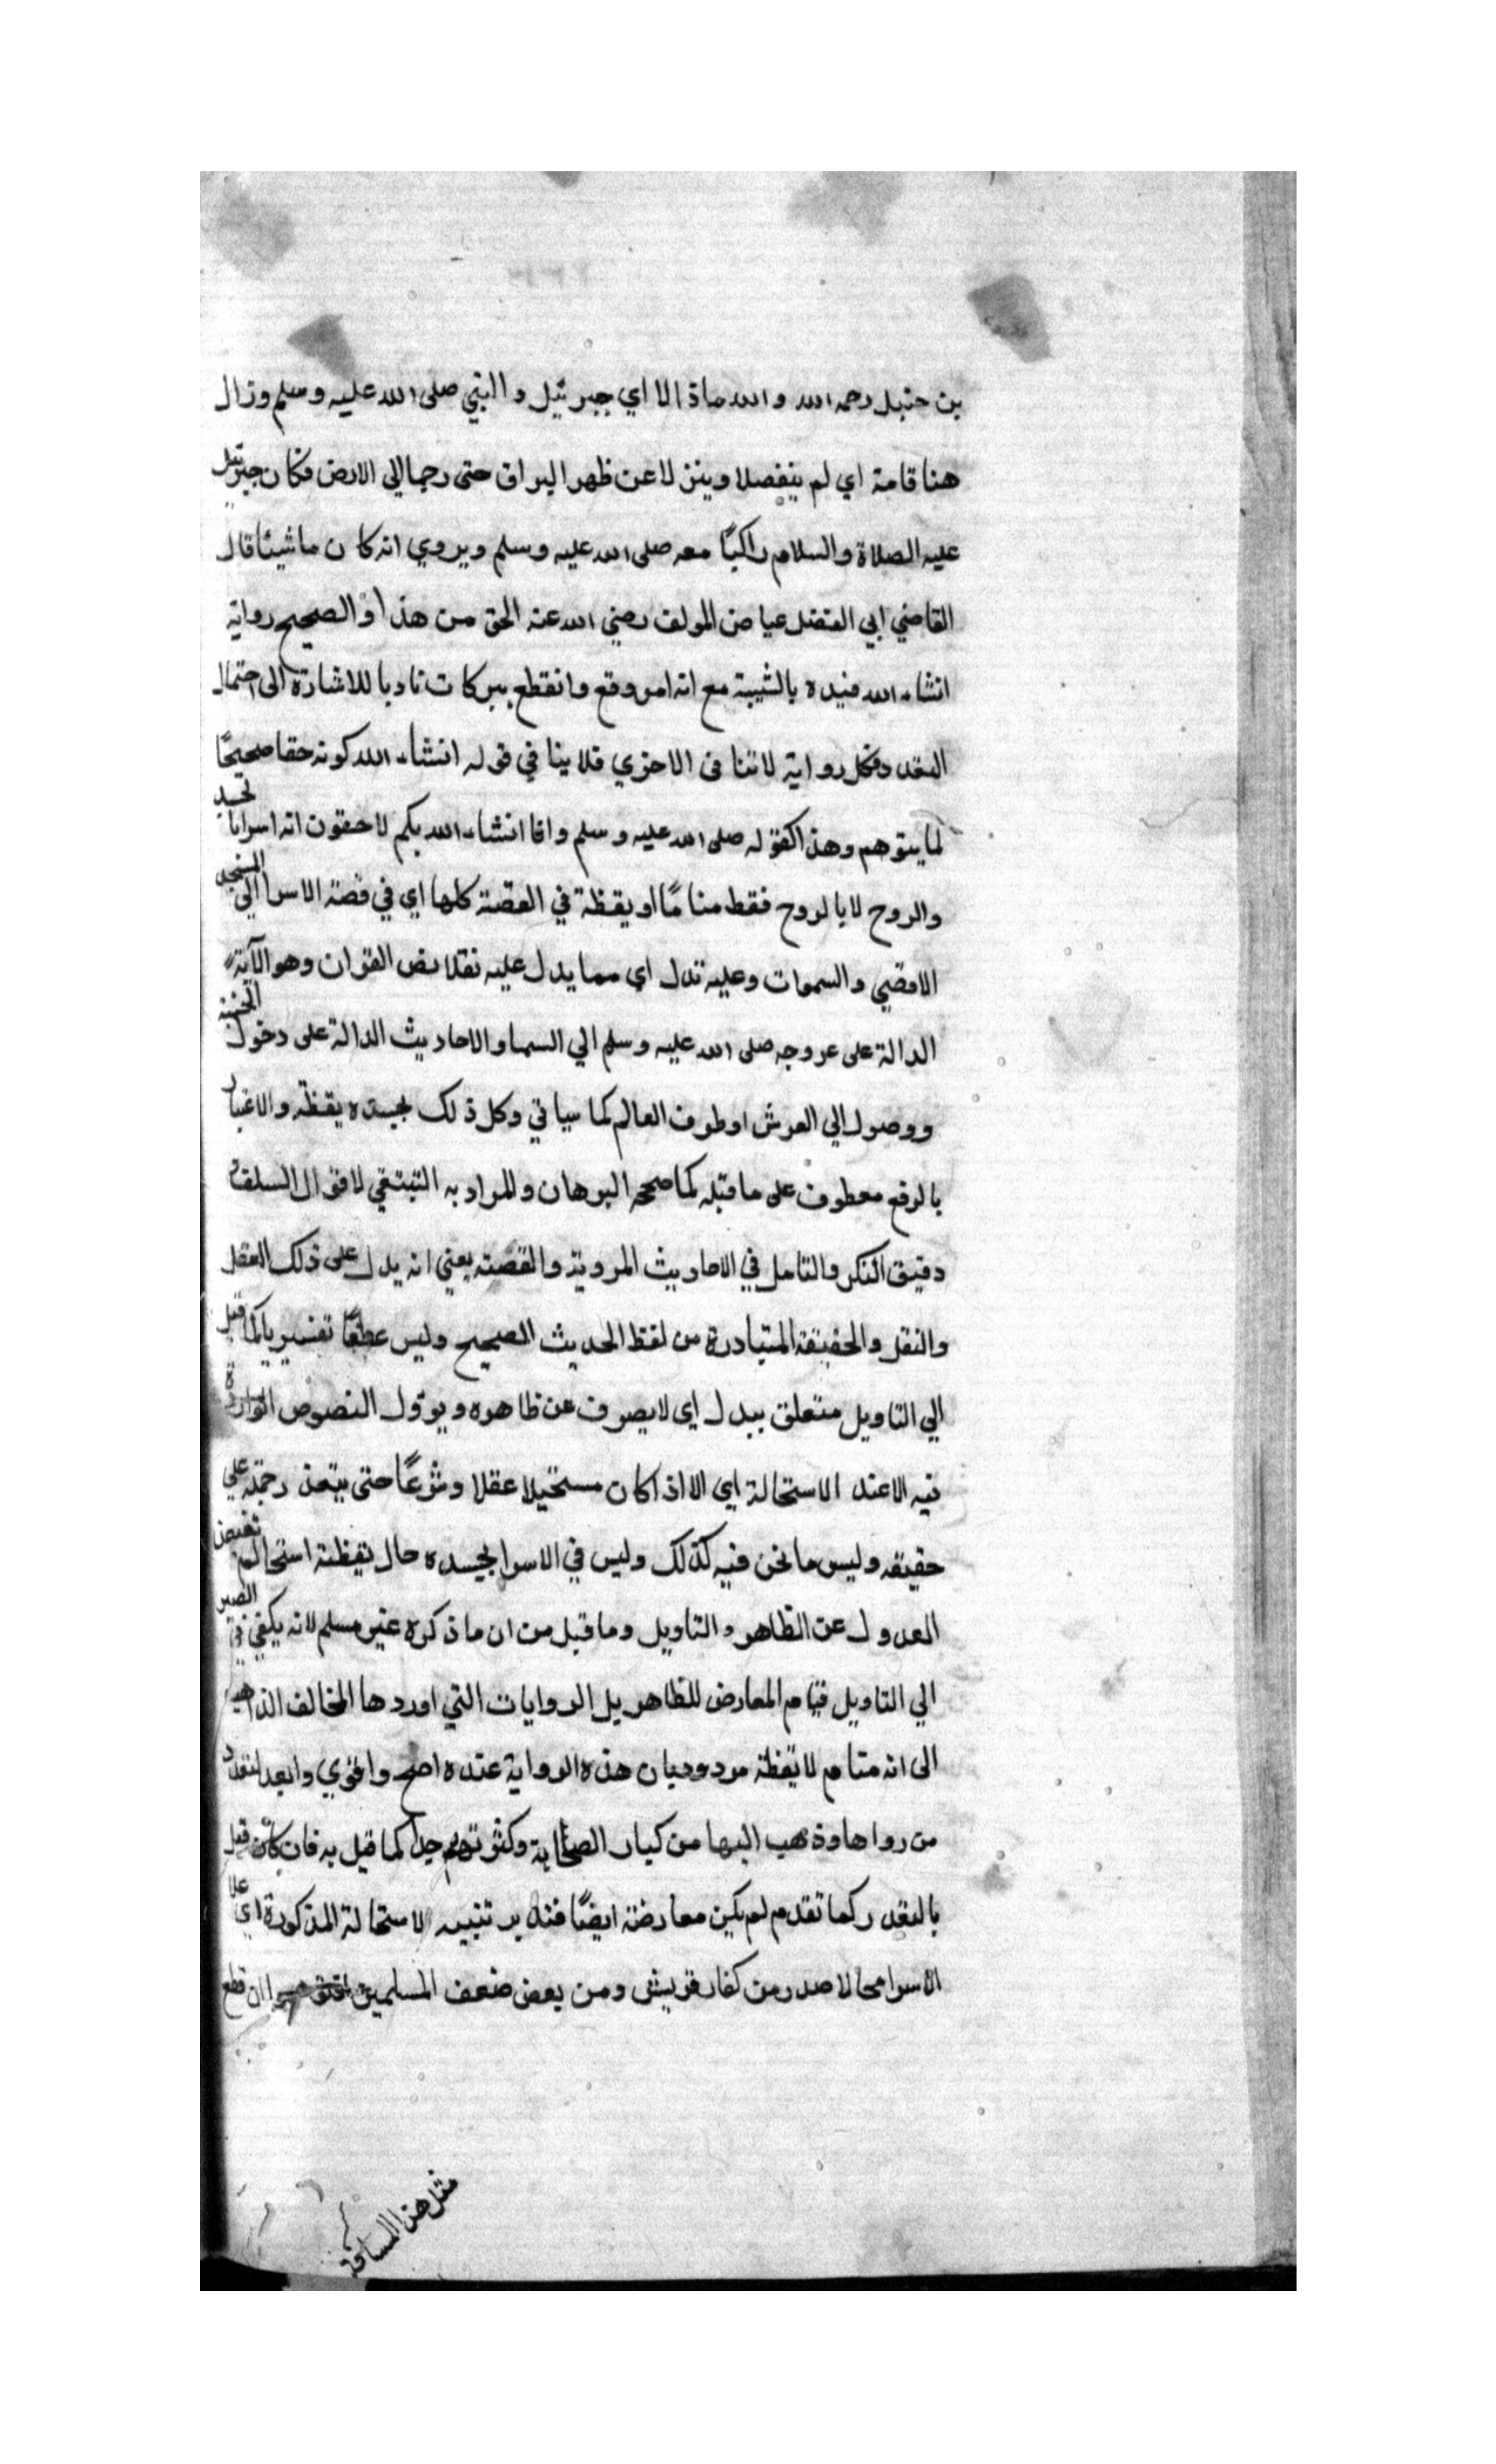 بن حنبل رحمه الله والله ماذالا اي جبرئيل والنبي صلى الله عليه وسلم وزال
هنا تامة اي لم ينفصلا وينزلا عن ظهر البراق حتى رجعا الي الارض فكان جبرئيل
عليه الصلاة والسلام راكبًا معه صلى الله عليه وسلم ويروي انه كان ماشيئا قال
القاضي ابي الفضل عياض المولف رضي الله عنه الحق من هذا والصحيح رواية
انشاء الله قيده بالمشية مع انه امر وقع وانقطع تاديا للاشارة الى احتمال
التعدد فكل رواية لا تنافى الاخري فلا ينافي قوله انشاء الله كونه حقا صحيحًا
لما يتوهم وهذا كقوله صلى الله عليه وسلم وانا انشاء الله بكم لاحقون انه اسرا بالجسد
والروح لا بالروح فقط منامًا او يقظة في القصة كلها اي في قصة الاسرا الي المسجد
الاقصي والسموات وعليه تدل اي مما يدل عليه نقلا نص القران وهو الآية
الدالة على عروجه صلى الله عليه وسلم الي السما والاحاديث الدالة على دخول الجنة
ووصول الي العرش او طرف العالم كما سياتي وكل ذلك بجسده يقظة والاعتبار
بالرفع معطوف على ما قبله كما صححه البرهان والمراد به لاقوال السلف
دقيق الفكر والتامل في الاحاديث المروية والقصة يعني انه يدل على ذلك العقل
والنقل والحقيقة المتبادرة من لفظ الحديث الصحيح وليس عطفًا تفسيريا كما قيل
الي التاويل متعلق بيدل اي لا يصرف عن ظاهره ويوول النصوص الواردة
فيه الا عند الاستحالة اي الا اذا كان مستحيلا عقلا وشرعًا حتى يتعذر حمله علي
حقيقه وليس ما نحن فيه كذلك وليس في الاسرا بجسده حال يقظته استحالة
العدول عن الظاهر والتاويل وما قيل من ان ما ذكره غير مسلم لانه يكفي في المصير
الي التاويل قيام المعارض للظاهر بل الروايات التي اوردها المخالف الذاهب
الى انه منام لا يقظة مردود بان هذه الرواية عنده اصح واقوي وابعد لتعدد
من رواها وذهب اليها من كبار الصحابة وكثرتهم جدا كما قيل به فان كان قيل
بالتعدد كما تقدم لم يكن معارضة ايضًا فتدبر تنبيه الاستحالة المذكورة اي
الاسرا محالا صدر من كفار قريش ومن بعض ضعف المسلمين ان قطع
مثل هذا المسافة